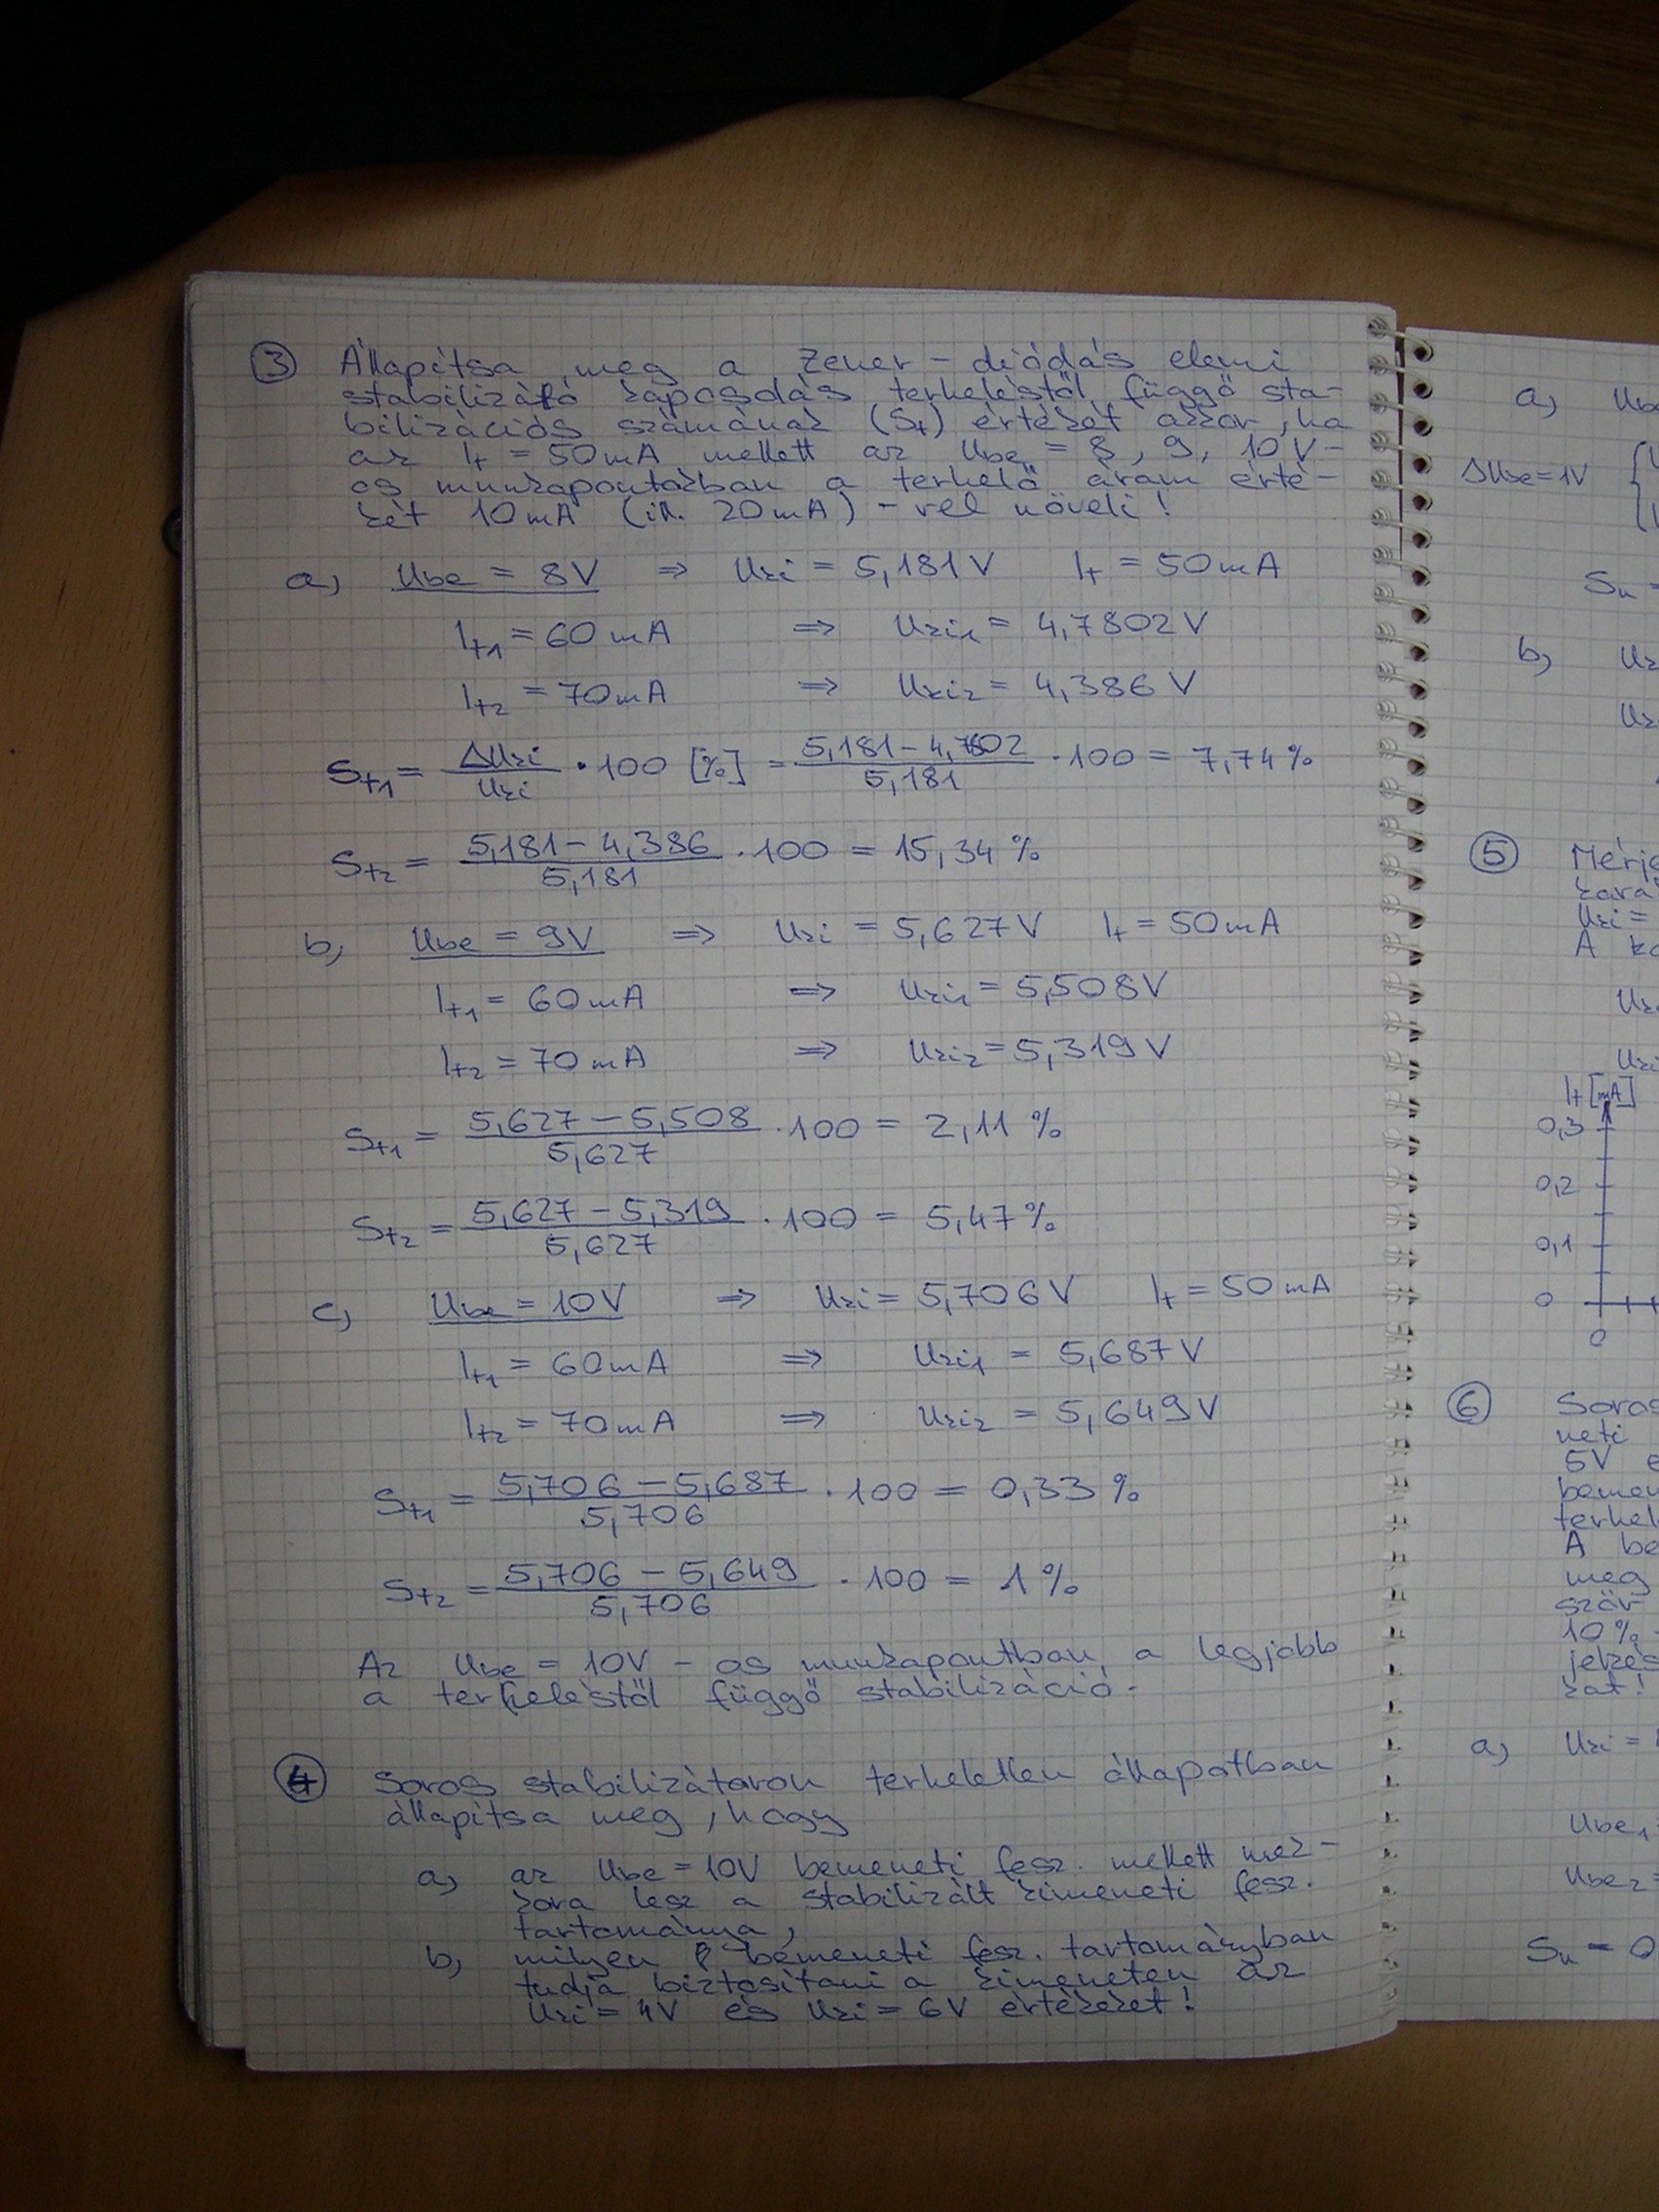 ③ Állapítsa meg a Zener-diódás elemi
stabilizáló kapcsolás terheléstől függő sta-
bilizációs számának (St) értékét akkor, ha
az It = 50mA mellett az Ube = 8, 9, 10V-
os munkapontokban a terhelő áram érté-
két 10mA (ill. 20mA)-rel növeli!
a, Ube = 8V ⇒ Uki = 5,181V It = 50mA
It1 = 60mA ⇒ Uki1 = 4,7802V
It2 = 70mA ⇒ Uki2 = 4,386V
St1 = ΔUki/Uki · 100 [%] = (5,181 - 4,7802)/5,181 · 100 = 7,74%
St2 = (5,181 - 4,386)/5,181 · 100 = 15,34%
b, Ube = 9V ⇒ Uki = 5,627V It = 50mA
It1 = 60mA ⇒ Uki1 = 5,508V
It2 = 70mA ⇒ Uki2 = 5,319V
St1 = (5,627 - 5,508)/5,627 · 100 = 2,11%
St2 = (5,627 - 5,319)/5,627 · 100 = 5,47%
c, Ube = 10V ⇒ Uki = 5,706V It = 50mA
It1 = 60mA ⇒ Uki1 = 5,687V
It2 = 70mA ⇒ Uki2 = 5,649V
St1 = (5,706 - 5,687)/5,706 · 100 = 0,33%
St2 = (5,706 - 5,649)/5,706 · 100 = 1%
Az Ube = 10V-os munkapontban a legjobb
a terheléstől függő stabilizáció.
④ Soros stabilizátoron terheletlen állapotban
állapítsa meg, hogy
a, az Ube = 10V bemeneti fesz. mellett mek-
kora lesz a stabilizált kimeneti fesz.
tartománya,
b, milyen bemeneti fesz. tartományban
tudja biztosítani a kimeneten az
Uki = 4V és Uki = 6V értékeket!
a,
ΔUbe = 1V
Su =
b,
⑤
Uki =
A
It [mA]
0,3
0,2
0,1
0
0
⑥
5V
A be
meg
10%
kat!
a, Uki =
Ube1
Ube2
Su = 0